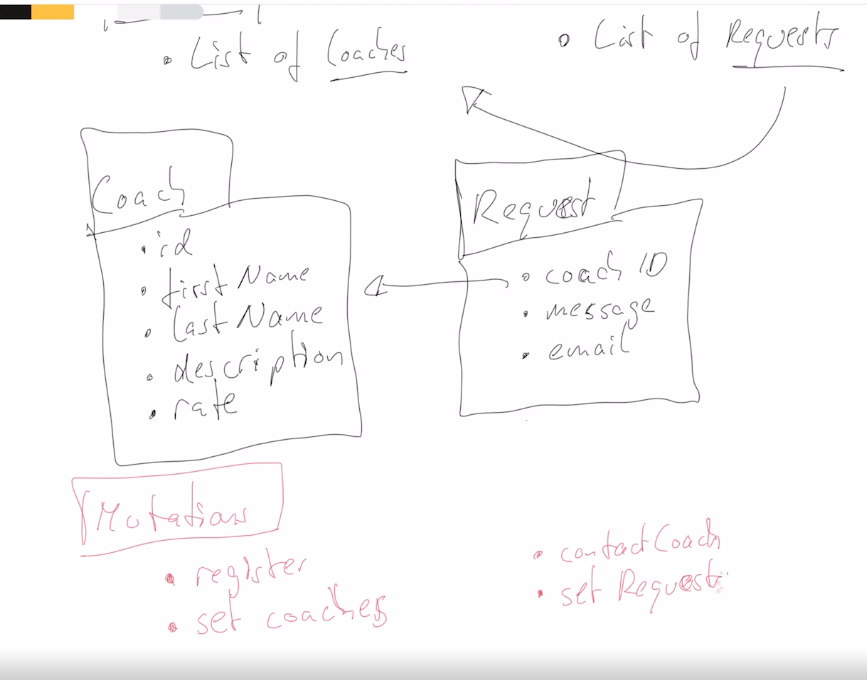 • List of Coaches
• List of Requests
Coach
• id
• firstName
• lastName
• description
• rate
Request
• coach ID
• message
• email
Mutations
• register
• set coaches
• contactCoach
• set Requests